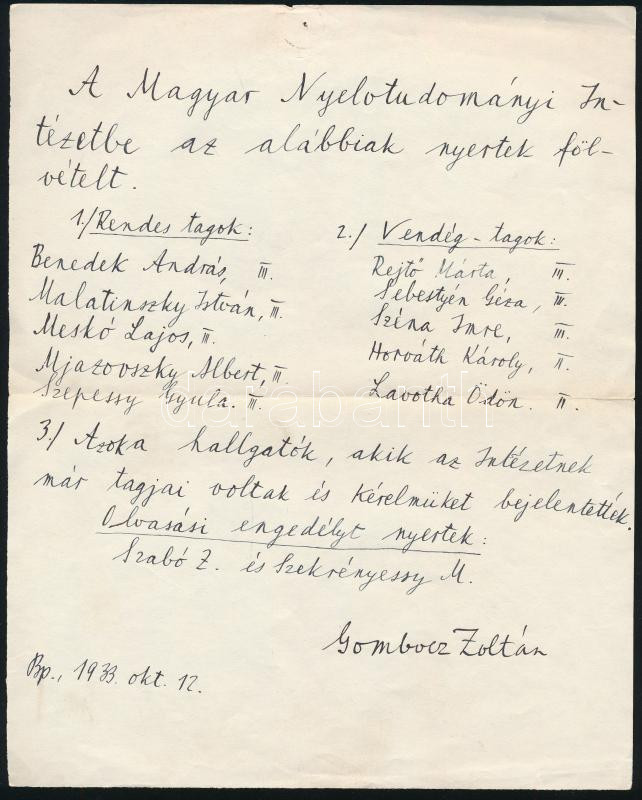 A Magyar Nyelvtudományi In-
tézetbe az alábbiak nyertek föl-
vételt.
1./ Rendes tagok:
Benedek András, III.
Malatinszky István, II.
Meskó Lajos, II.
Mjazovszky Albert, II.
Szepessy Gyula. II.
2./ Vendég-tagok:
Rejtő Márta, III.
Sebestyén Géza, III.
Széna Imre, III.
Horváth Károly, II.
Lavotha Ödön. II.
3./ Azok a hallgatók, akik az Intézetnek
már tagjai voltak és kérelmüket bejelentették.
Olvasási engedélyt nyertek:
Szabó Z. és Szekrényessy M.
Gombocz Zoltán
Bp., 1933. okt. 12.
darabanth